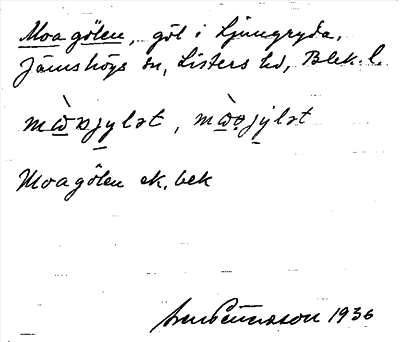 Moagölen, göl i Ljungryda,
Jämshögs sn, Listers hd, Blek. l.
mὼɒjylət, mὼɒjýlət
Moagölen ek, bek
1936